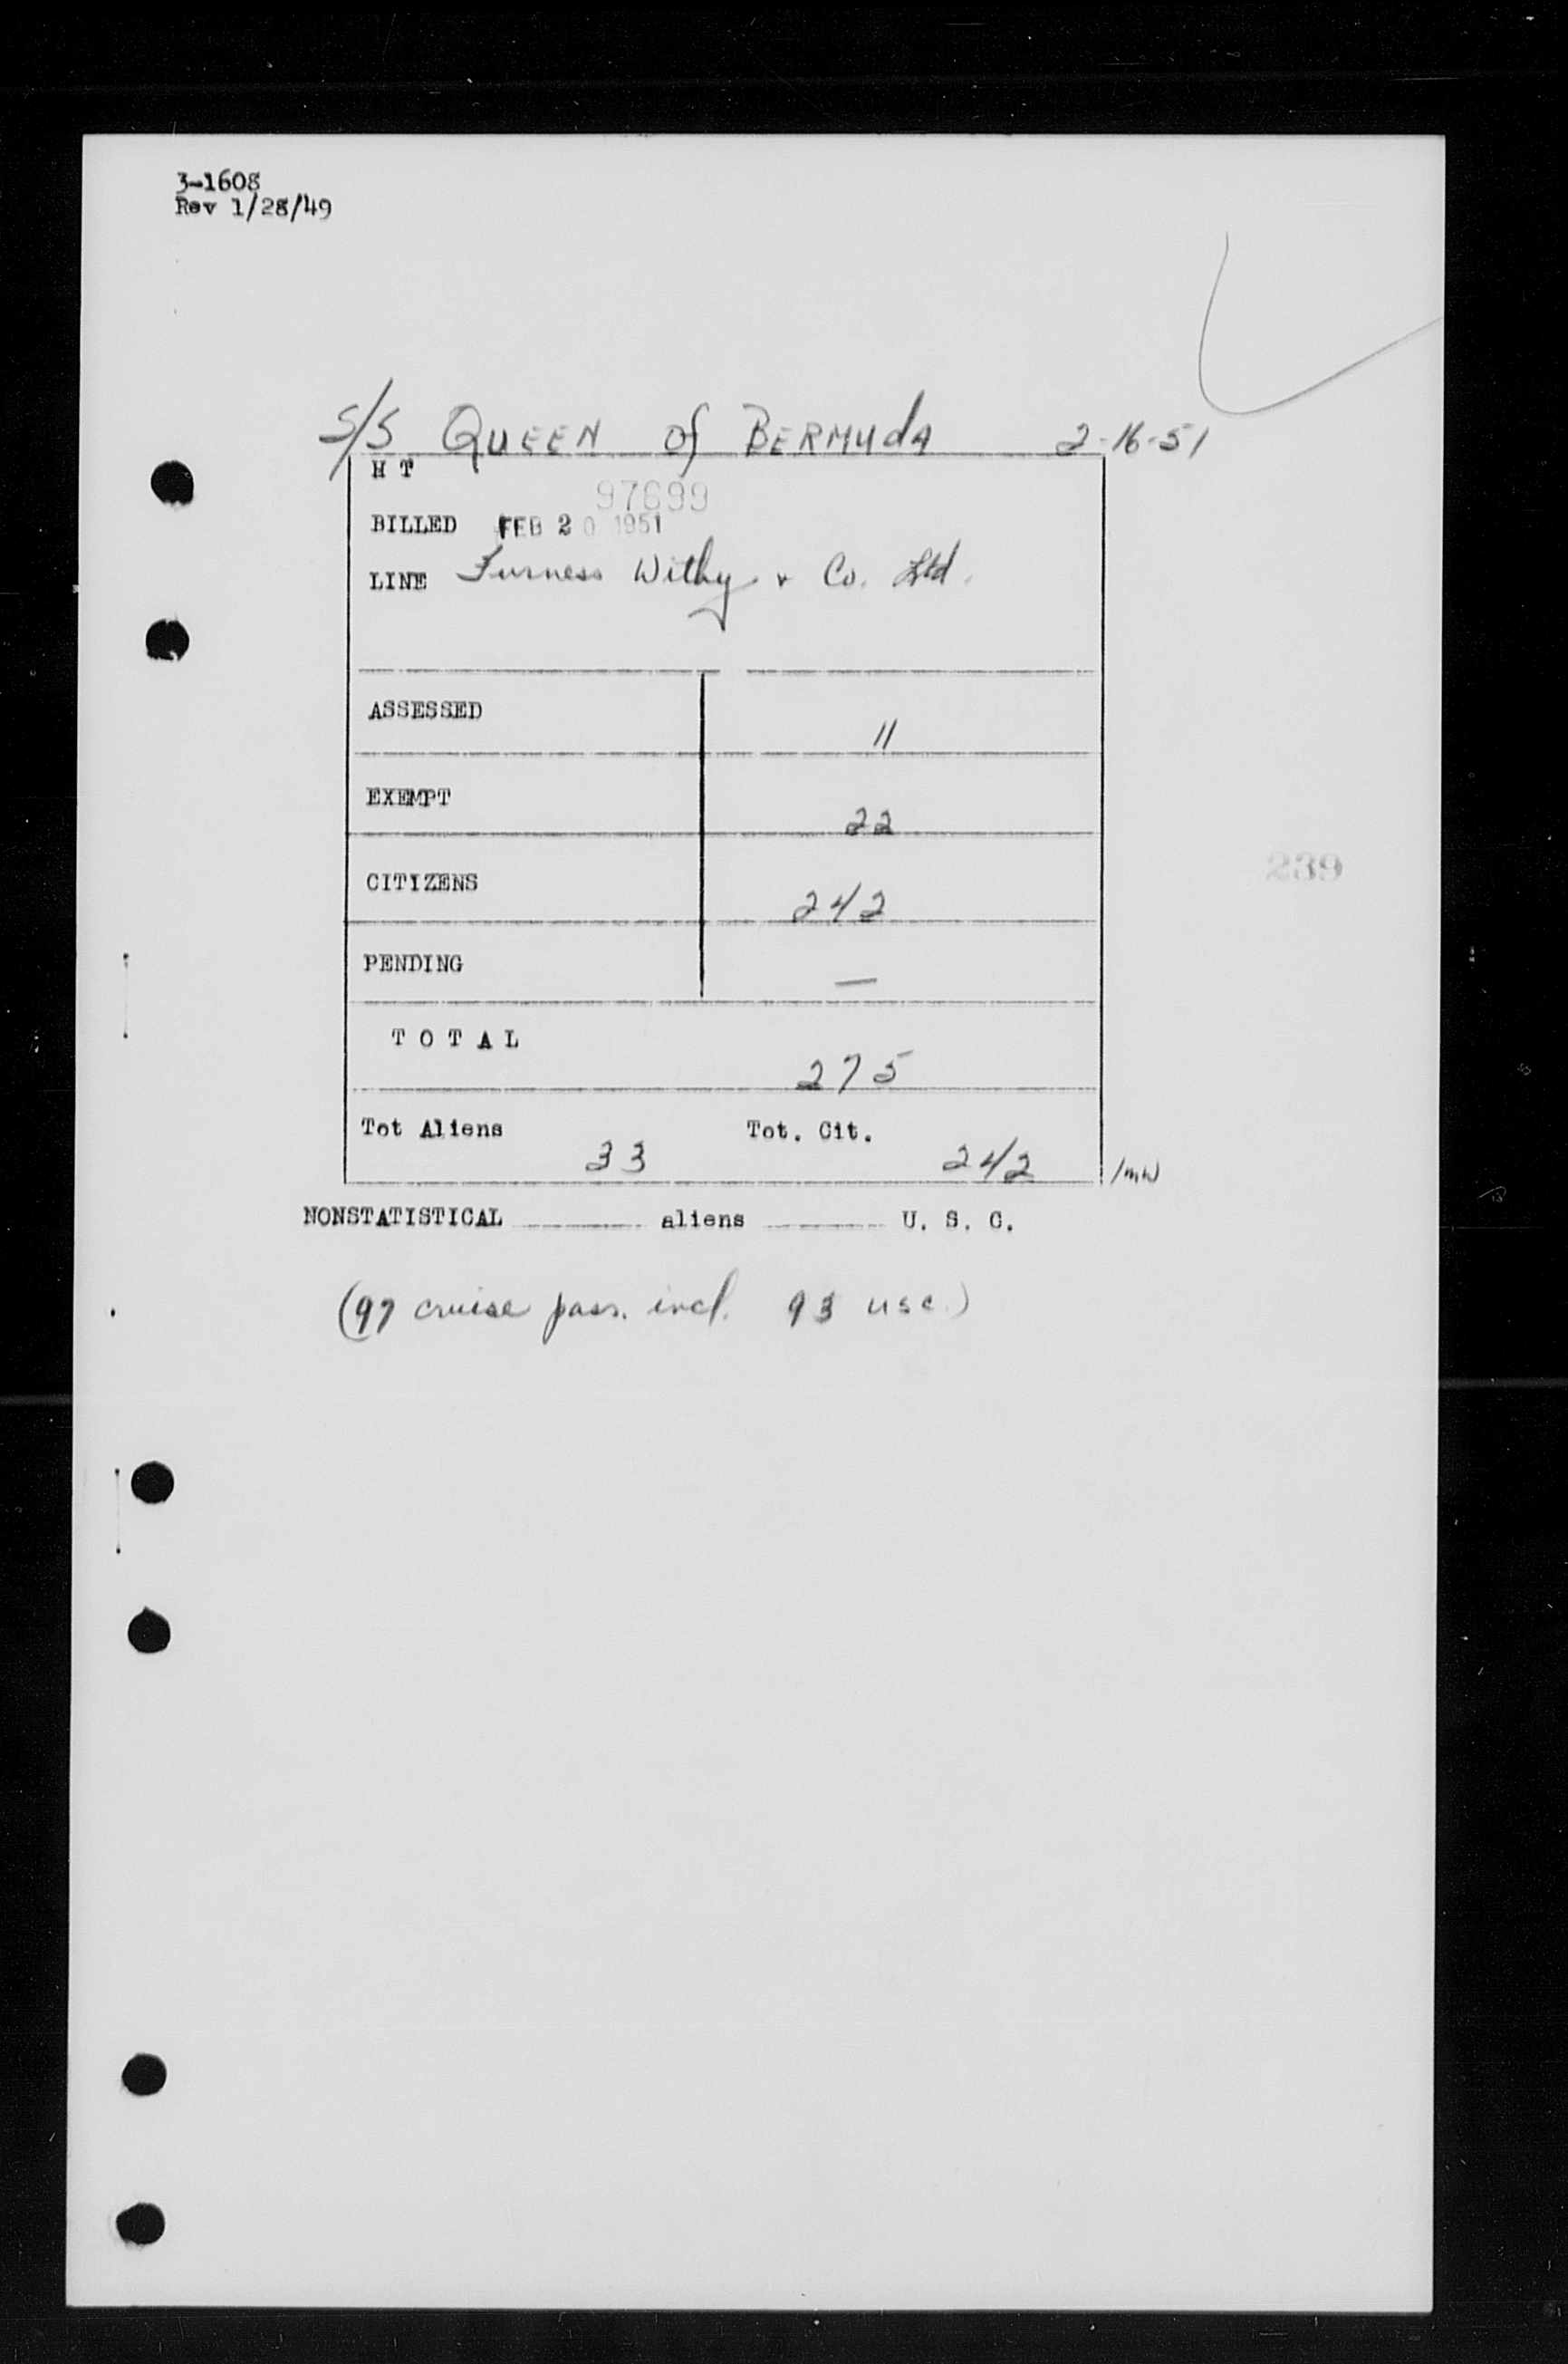 3-1608
Rev 1/28/49
S/S QUEEN of BERMUdA 2-16-51
H T
97699
BILLED FEB 20 1951
LINE Furness Withy & Co. Ltd.
ASSESSED 11
EXEMPT 22
239
CITIZENS 242
PENDING —
T O T A L 275
Tot Aliens 33 Tot. Cit. 242 /mw
NONSTATISTICAL aliens U. S. C.
(97 cruise pass. incl. 93 usc.)